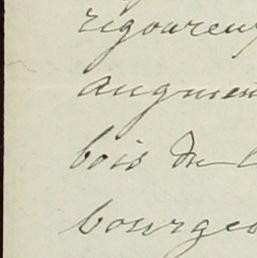 rigoureux
augmen
bois du l
bourgeo